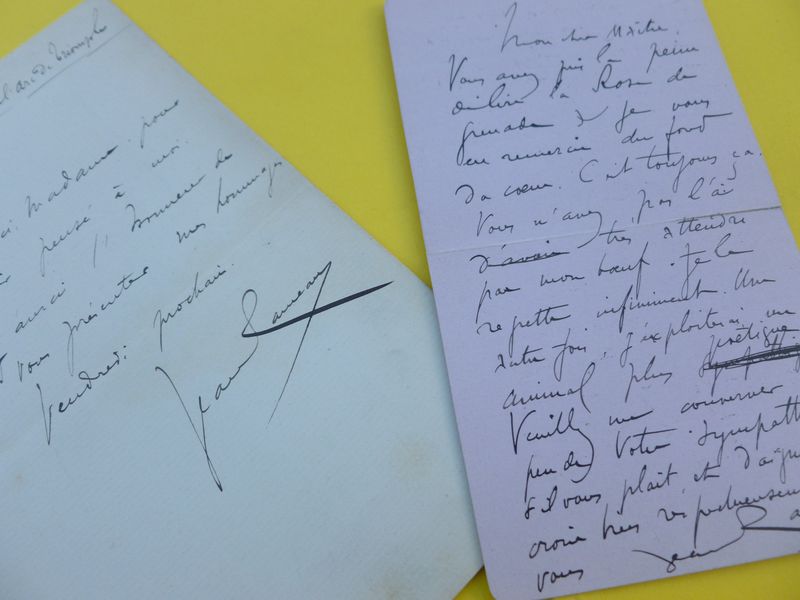 l'arc de Triomphe
Madame, pour
pensé à moi.
aurai l'honneur de
vous présenter mes hommages
Vendredi prochain.
Jean Rameau
Mon cher Maître,
Vous avez pris la peine
de lire la Rose de
Grenade & je vous
en remercie du fond
du coeur. C'est toujours ça.
Vous n'avez pas l'air
d'avoir très attendri
par mon boeuf. Je le
regrette infiniment. Une
autre fois, j'exploiterai un
animal plus poétique
Veuillez me conserver un
peu de votre sympathie
s'il vous plaît et daignez
croire très respectueusement
vous Jean